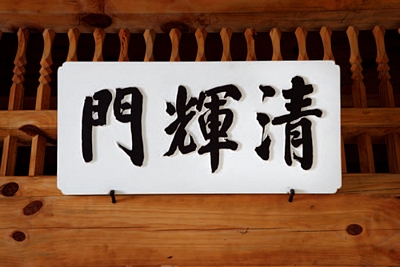 清輝門